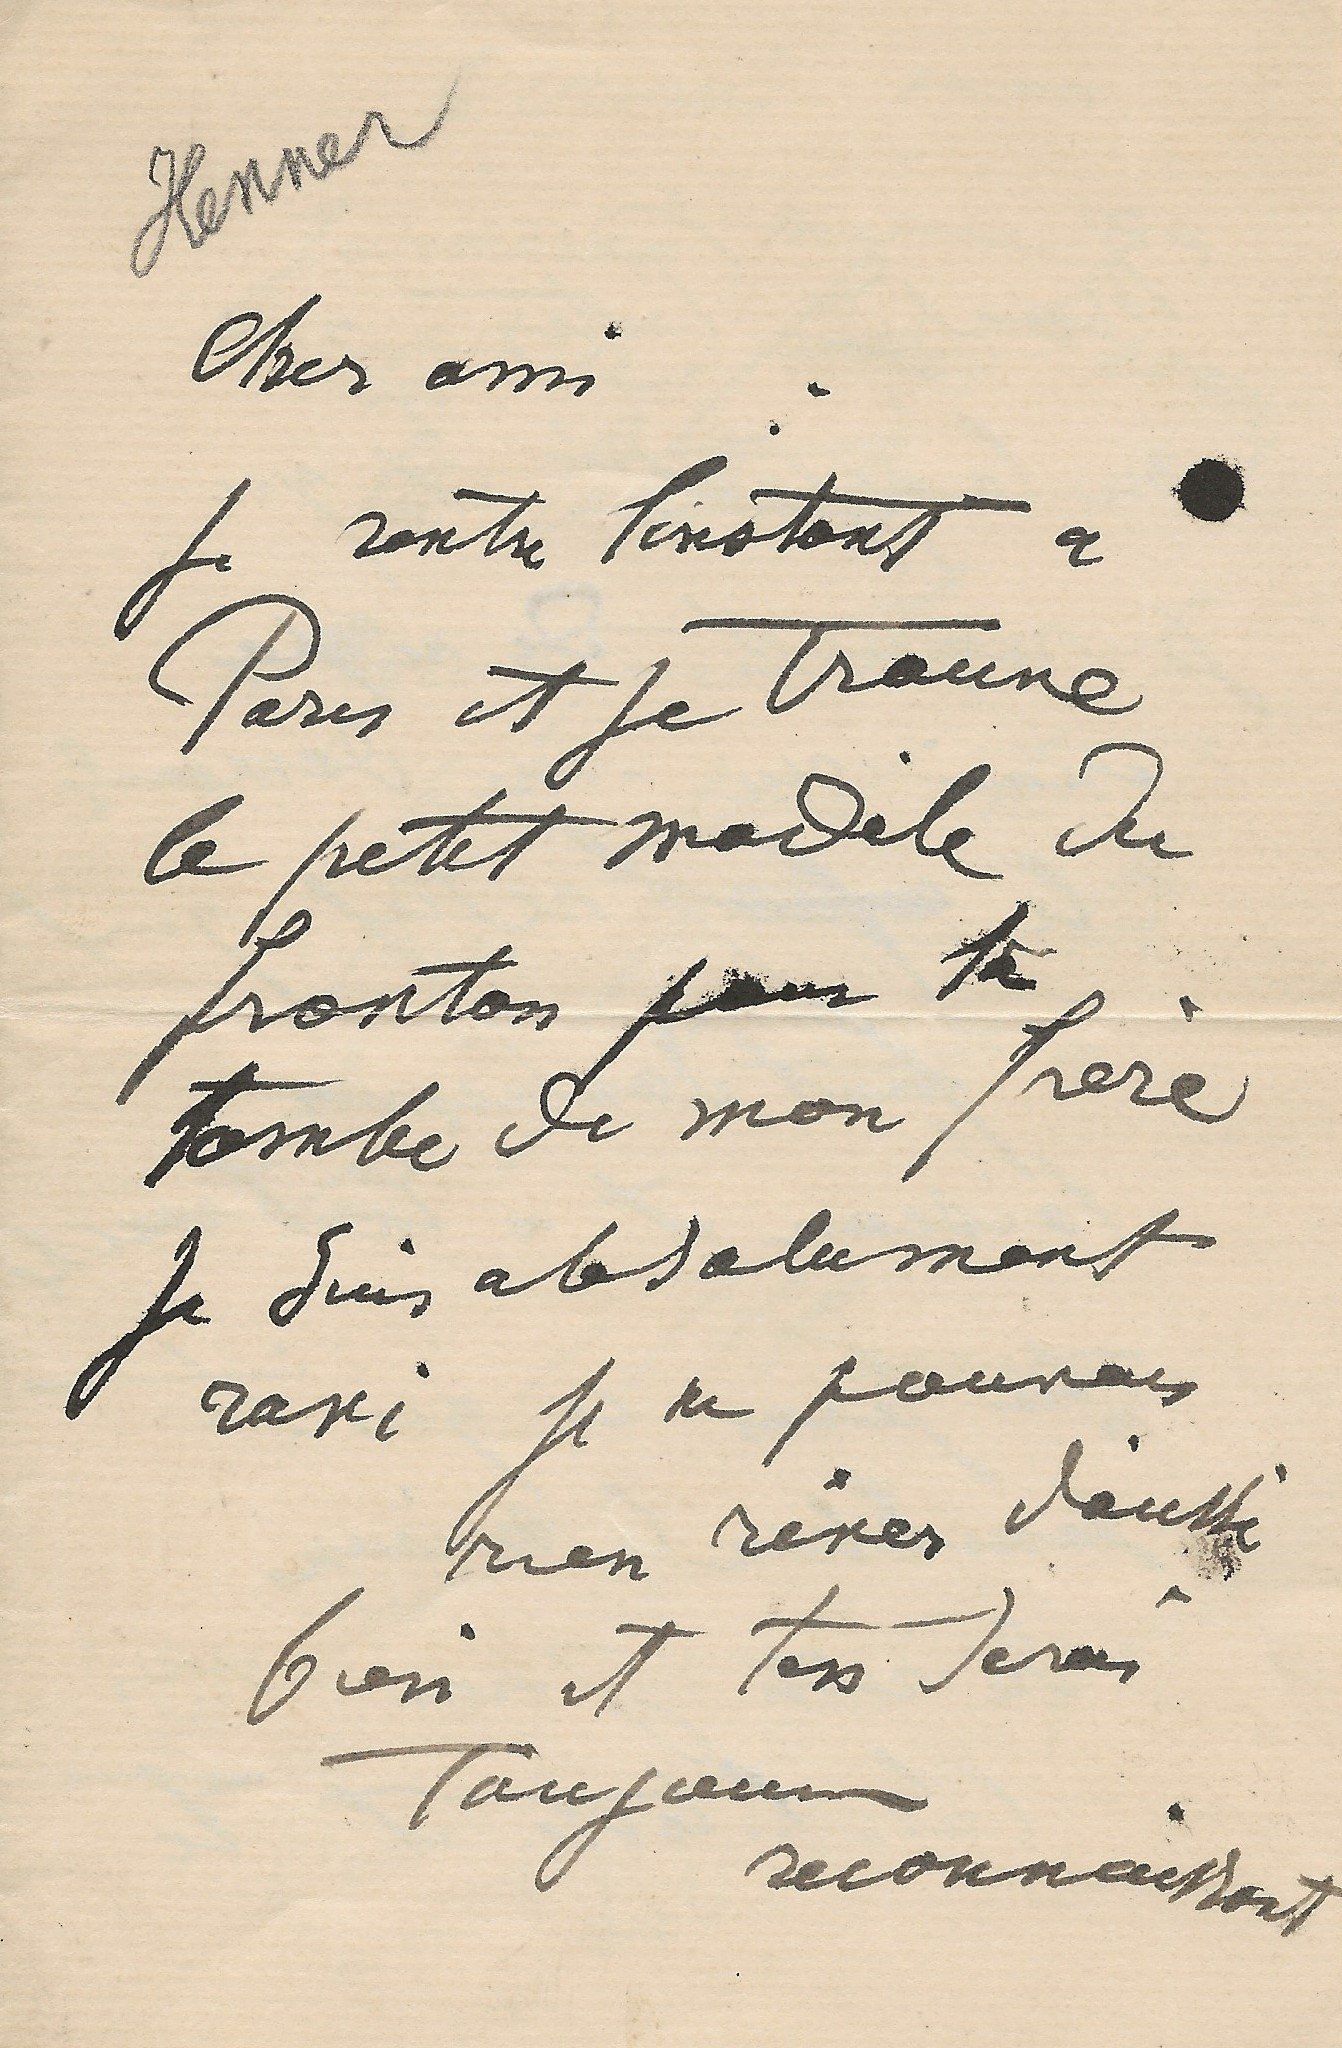 Henner
Cher ami
Je rentre l'instant a
Paris et je trouve
le petit modèle du
fronton pour la
tombe de mon frère
Je suis absolument
ravi je ne pouvais
rien rêver d'aussi
bien et t'en serai
Toujours
reconnaissant